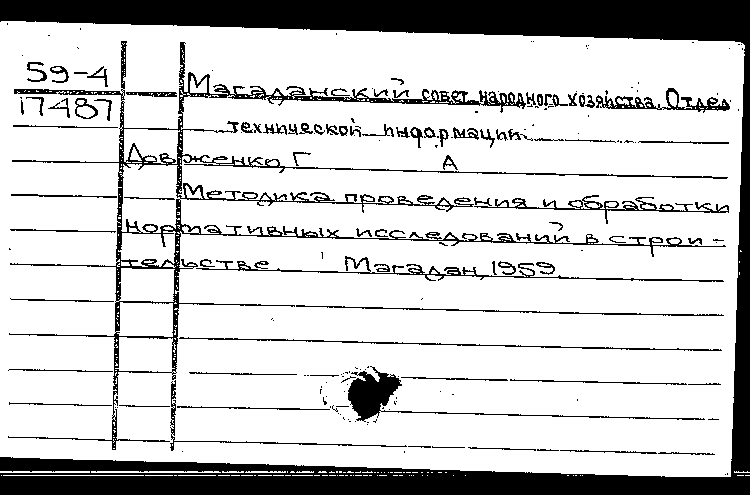 59-4
17487
Магаданский совет народного хозяйства. Отдел
технической информации
Довженко, Г А
Методика проведения и обработки
нормативных исследований в строи-
тельстве. Магадан, 1959.